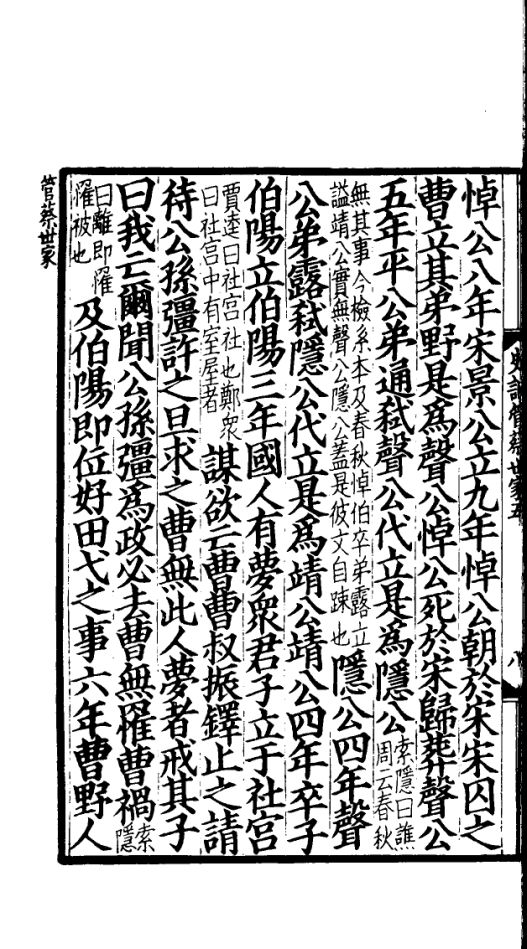 悼公八年宋景公立九年悼公朝於宋宋囚之
曹立其弟野是爲聲公悼公死於宋歸葬聲公
五年平公弟通弒聲公代立是爲隱公索隱曰譙周云春秋
無其事今檢系本及春秋悼伯卒弟露立謚靖公實無聲公隱公蓋是彼文自踈也隱公四年聲
公弟露弒隱公代立是爲靖公靖公四年卒子
伯陽立伯陽三年國人有夢衆君子立于社宮
賈逵曰社宮社也鄭衆曰社宮中有室屋者謀欲亡曹曹叔振鐸止之請
待公孫彊許之旦求之曹無此人夢者戒其子
曰我亡爾聞公孫彊爲政必去曹無罹曹禍索隱
曰離即罹罹被也及伯陽即位好田弋之事六年曹野人
管蔡世家
史記管蔡世家五
八